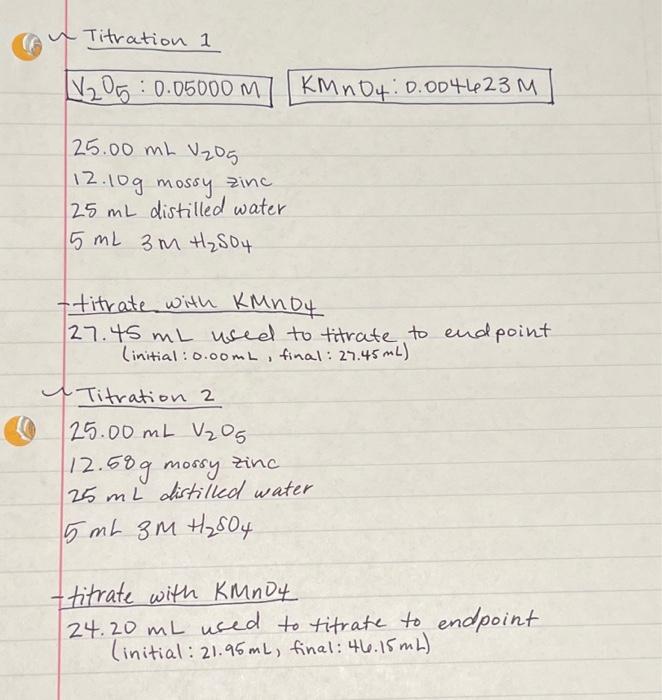 Titration 1
V2O5 : 0.05000 M KMnO4 : 0.004623 M
25.00 mL V2O5
12.10g mossy zinc
25 mL distilled water
5 mL 3M H2SO4
titrate with KMnO4
27.45 mL used to titrate to endpoint
(initial : 0.00mL , final : 27.45mL)
Titration 2
25.00 mL V2O5
12.58g mossy zinc
25 mL distilled water
5 mL 3M H2SO4
titrate with KMnO4
24.20 mL used to titrate to endpoint
(initial : 21.95mL, final: 46.15mL)